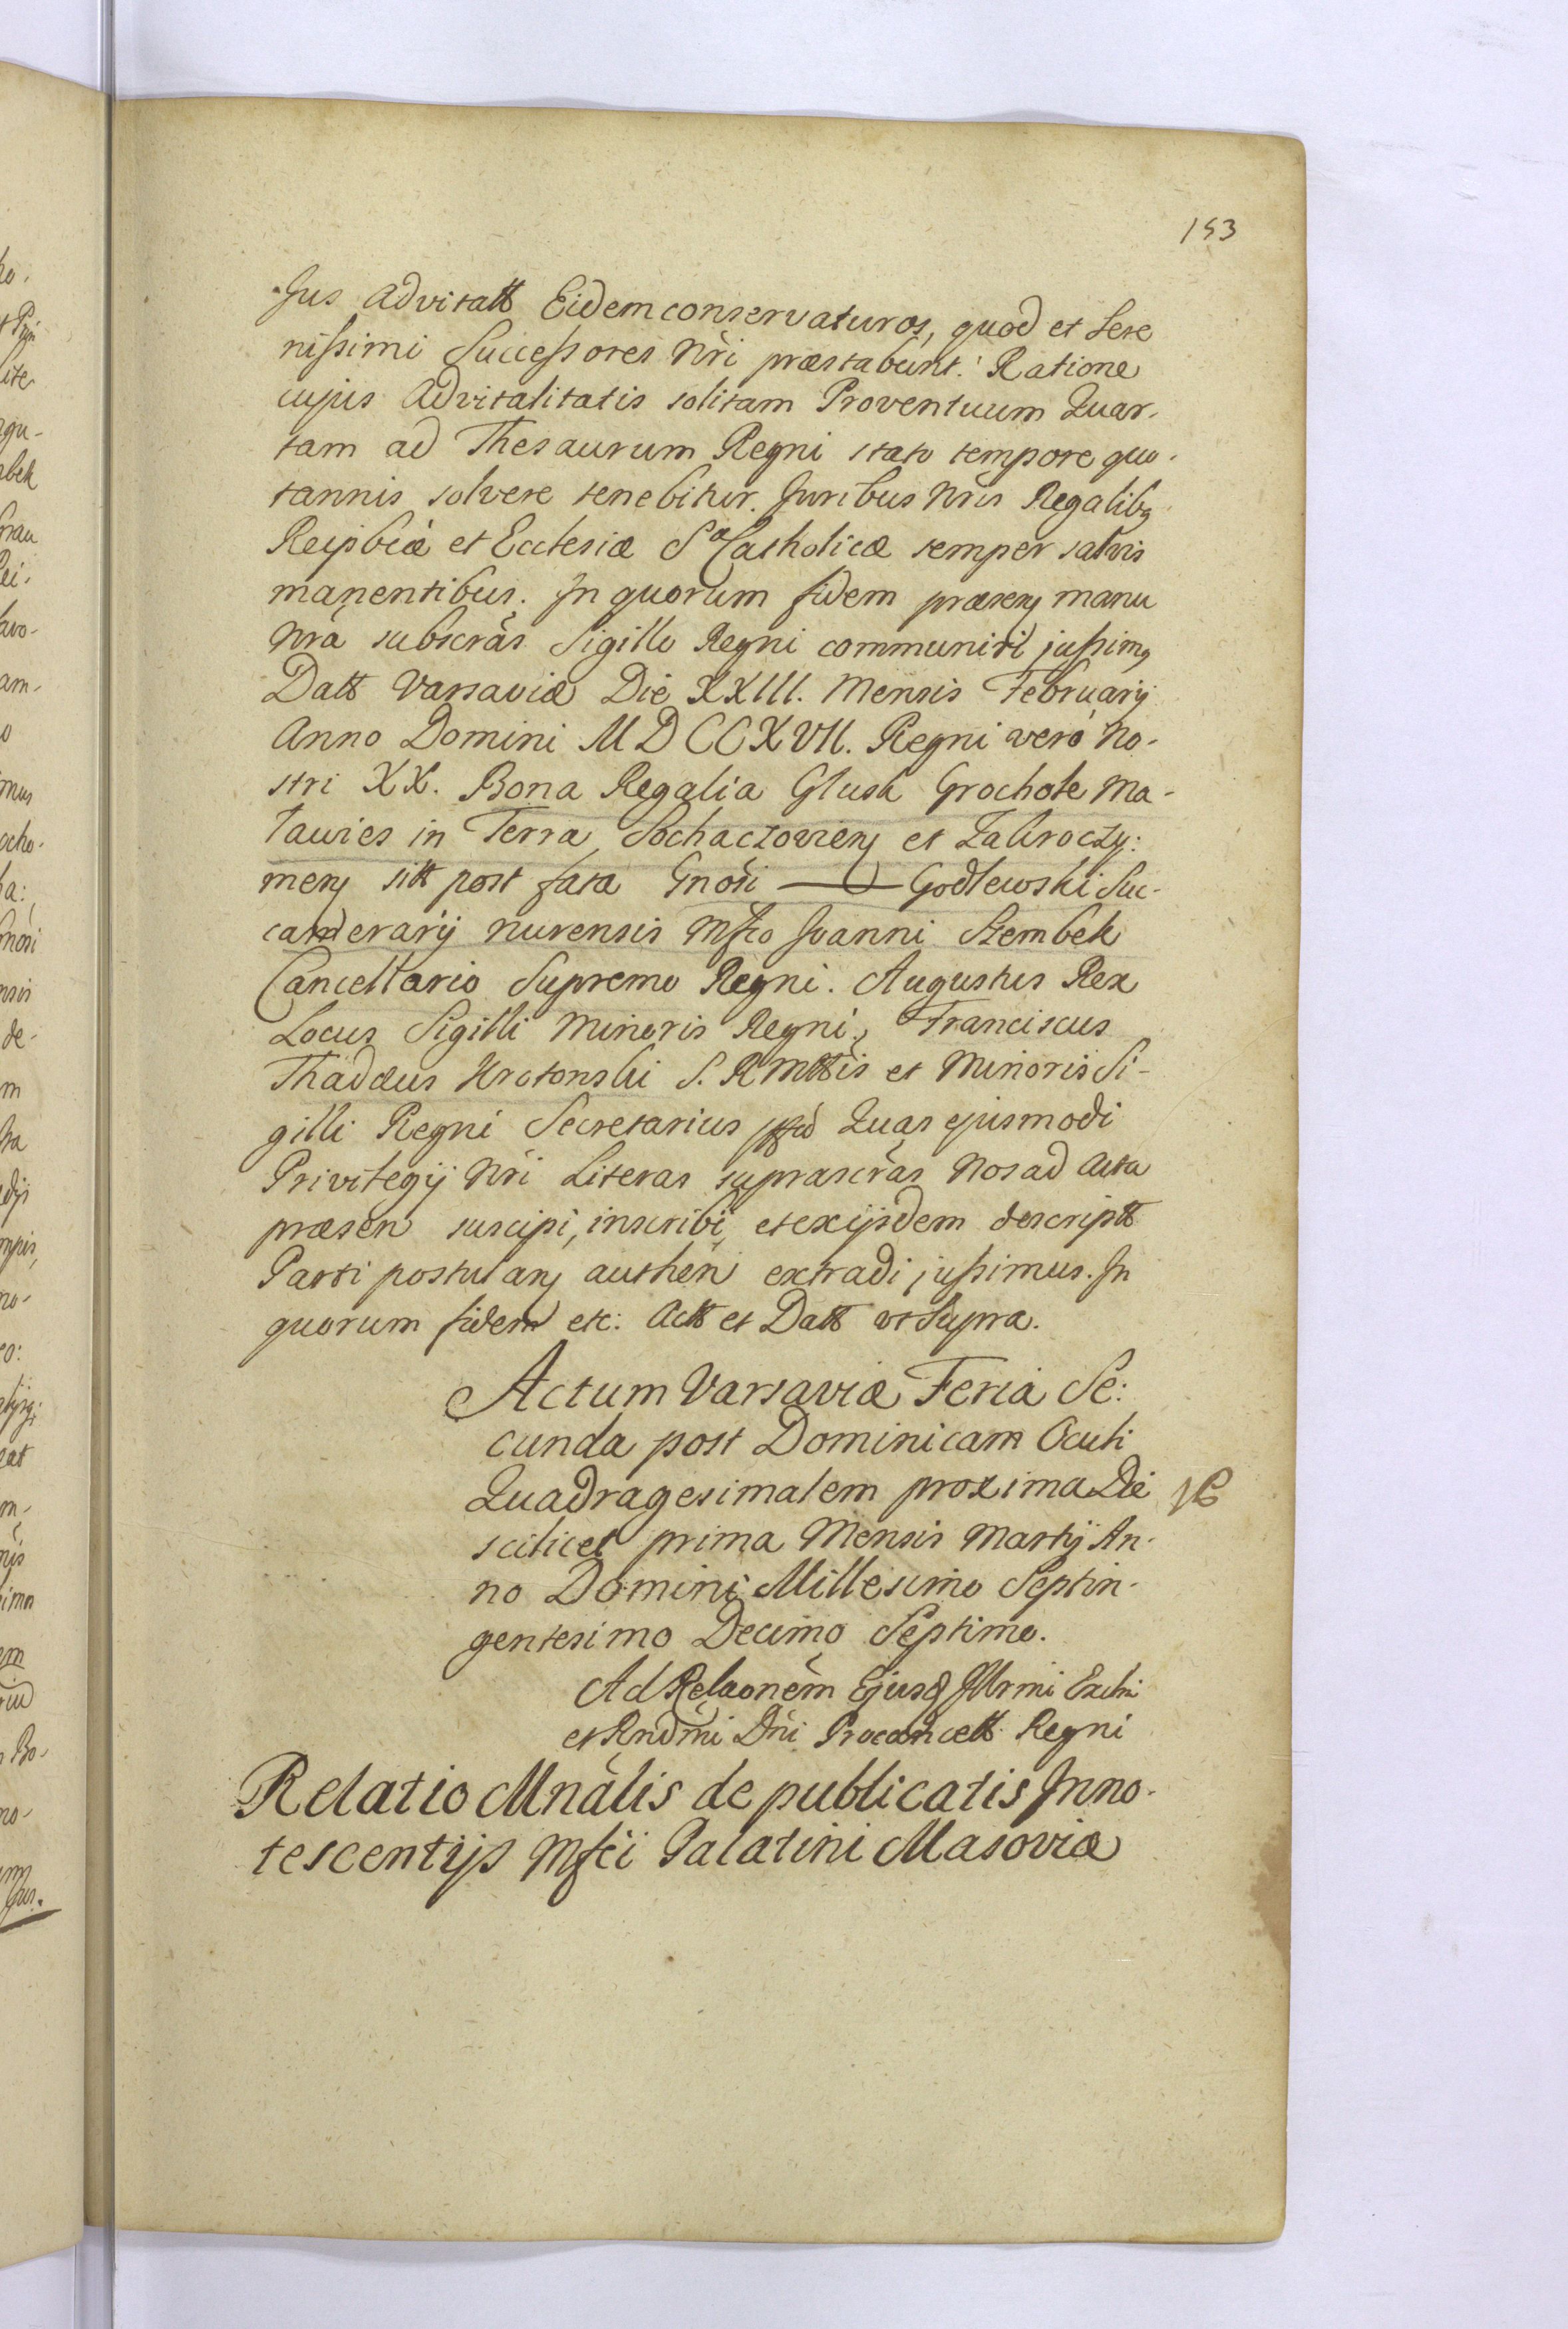 153
Jus Advitatt Eidem conservaturos, quod et Sere
nissimi Successores Nri præstabunt. Ratione
cujus Advitalitatis solitam Proventuum Quar-
tam ad Thesaurum Regni stato tempore quo-
tannis solvere tenebitur. Juribus Nris Regalibq
Reipbcæ et Ecclesiæ Sæ Catholicæ semper salvis
manentibus. In quorum fidem præsens manu
Nra subscras Sigillo Regni communiri jussimq
Datt Varsaviæ Die XXIII. Mensis Februarij
Anno Domini MDCCXVII. Regni vero No-
stri XX. Bona Regalia Glusk Grochole Ma-
tawies in Terra Sochaczoviens et Zakroczy:
mens sitt post fata Gnosi — Godlewski Suc-
camerarij Nurensis Mfco Joanni Szembek
Cancellario Supremo Regni. Augustus Rex
Locus Sigilli Minoris Regni, Franciscus
Thaddæus Krotonski S. R Mttis et Minoris Si-
gilli Regni Secretarius Quas ejusmodi
Privilegij Nri Literas suprascras Nos ad Acta
præsen suscipi, inscribi, et ex ijsdem descriptt
Parti postulans authen extradi jussimus. In
quorum fidem etc: Actt et Datt ut Supra.
Actum Varsaviæ Feria Se:
cunda post Dominicam Oculi
Quadragesimalem proxima Die
scilicet prima Mensis Martij An-
no Domini Millesimo Septin-
gentesimo Decimo Septimo.
Ad Relaonem Ejusd Illrmi Exclmi
et Rndmi Dni Procancell Regni
Relatio Mnalis de publicatis Inno-
tescentijs Mfci Palatini Masoviæ